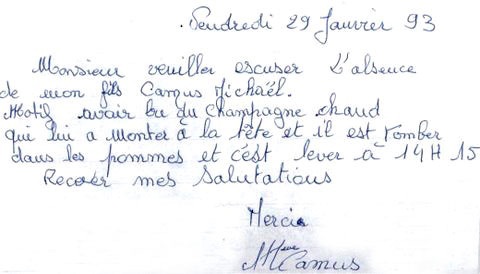 Vendredi 29 Janvier 93
Monsieur veuiller escuser L'absence
de mon fils Camus Michaël.
Motif avoir bu du Champagne chaud
qui lui a monter à la tête et il est tomber
dans les pommes et c'est lever à 14H15
Recever mes Salutations
Merci
Mme Camus